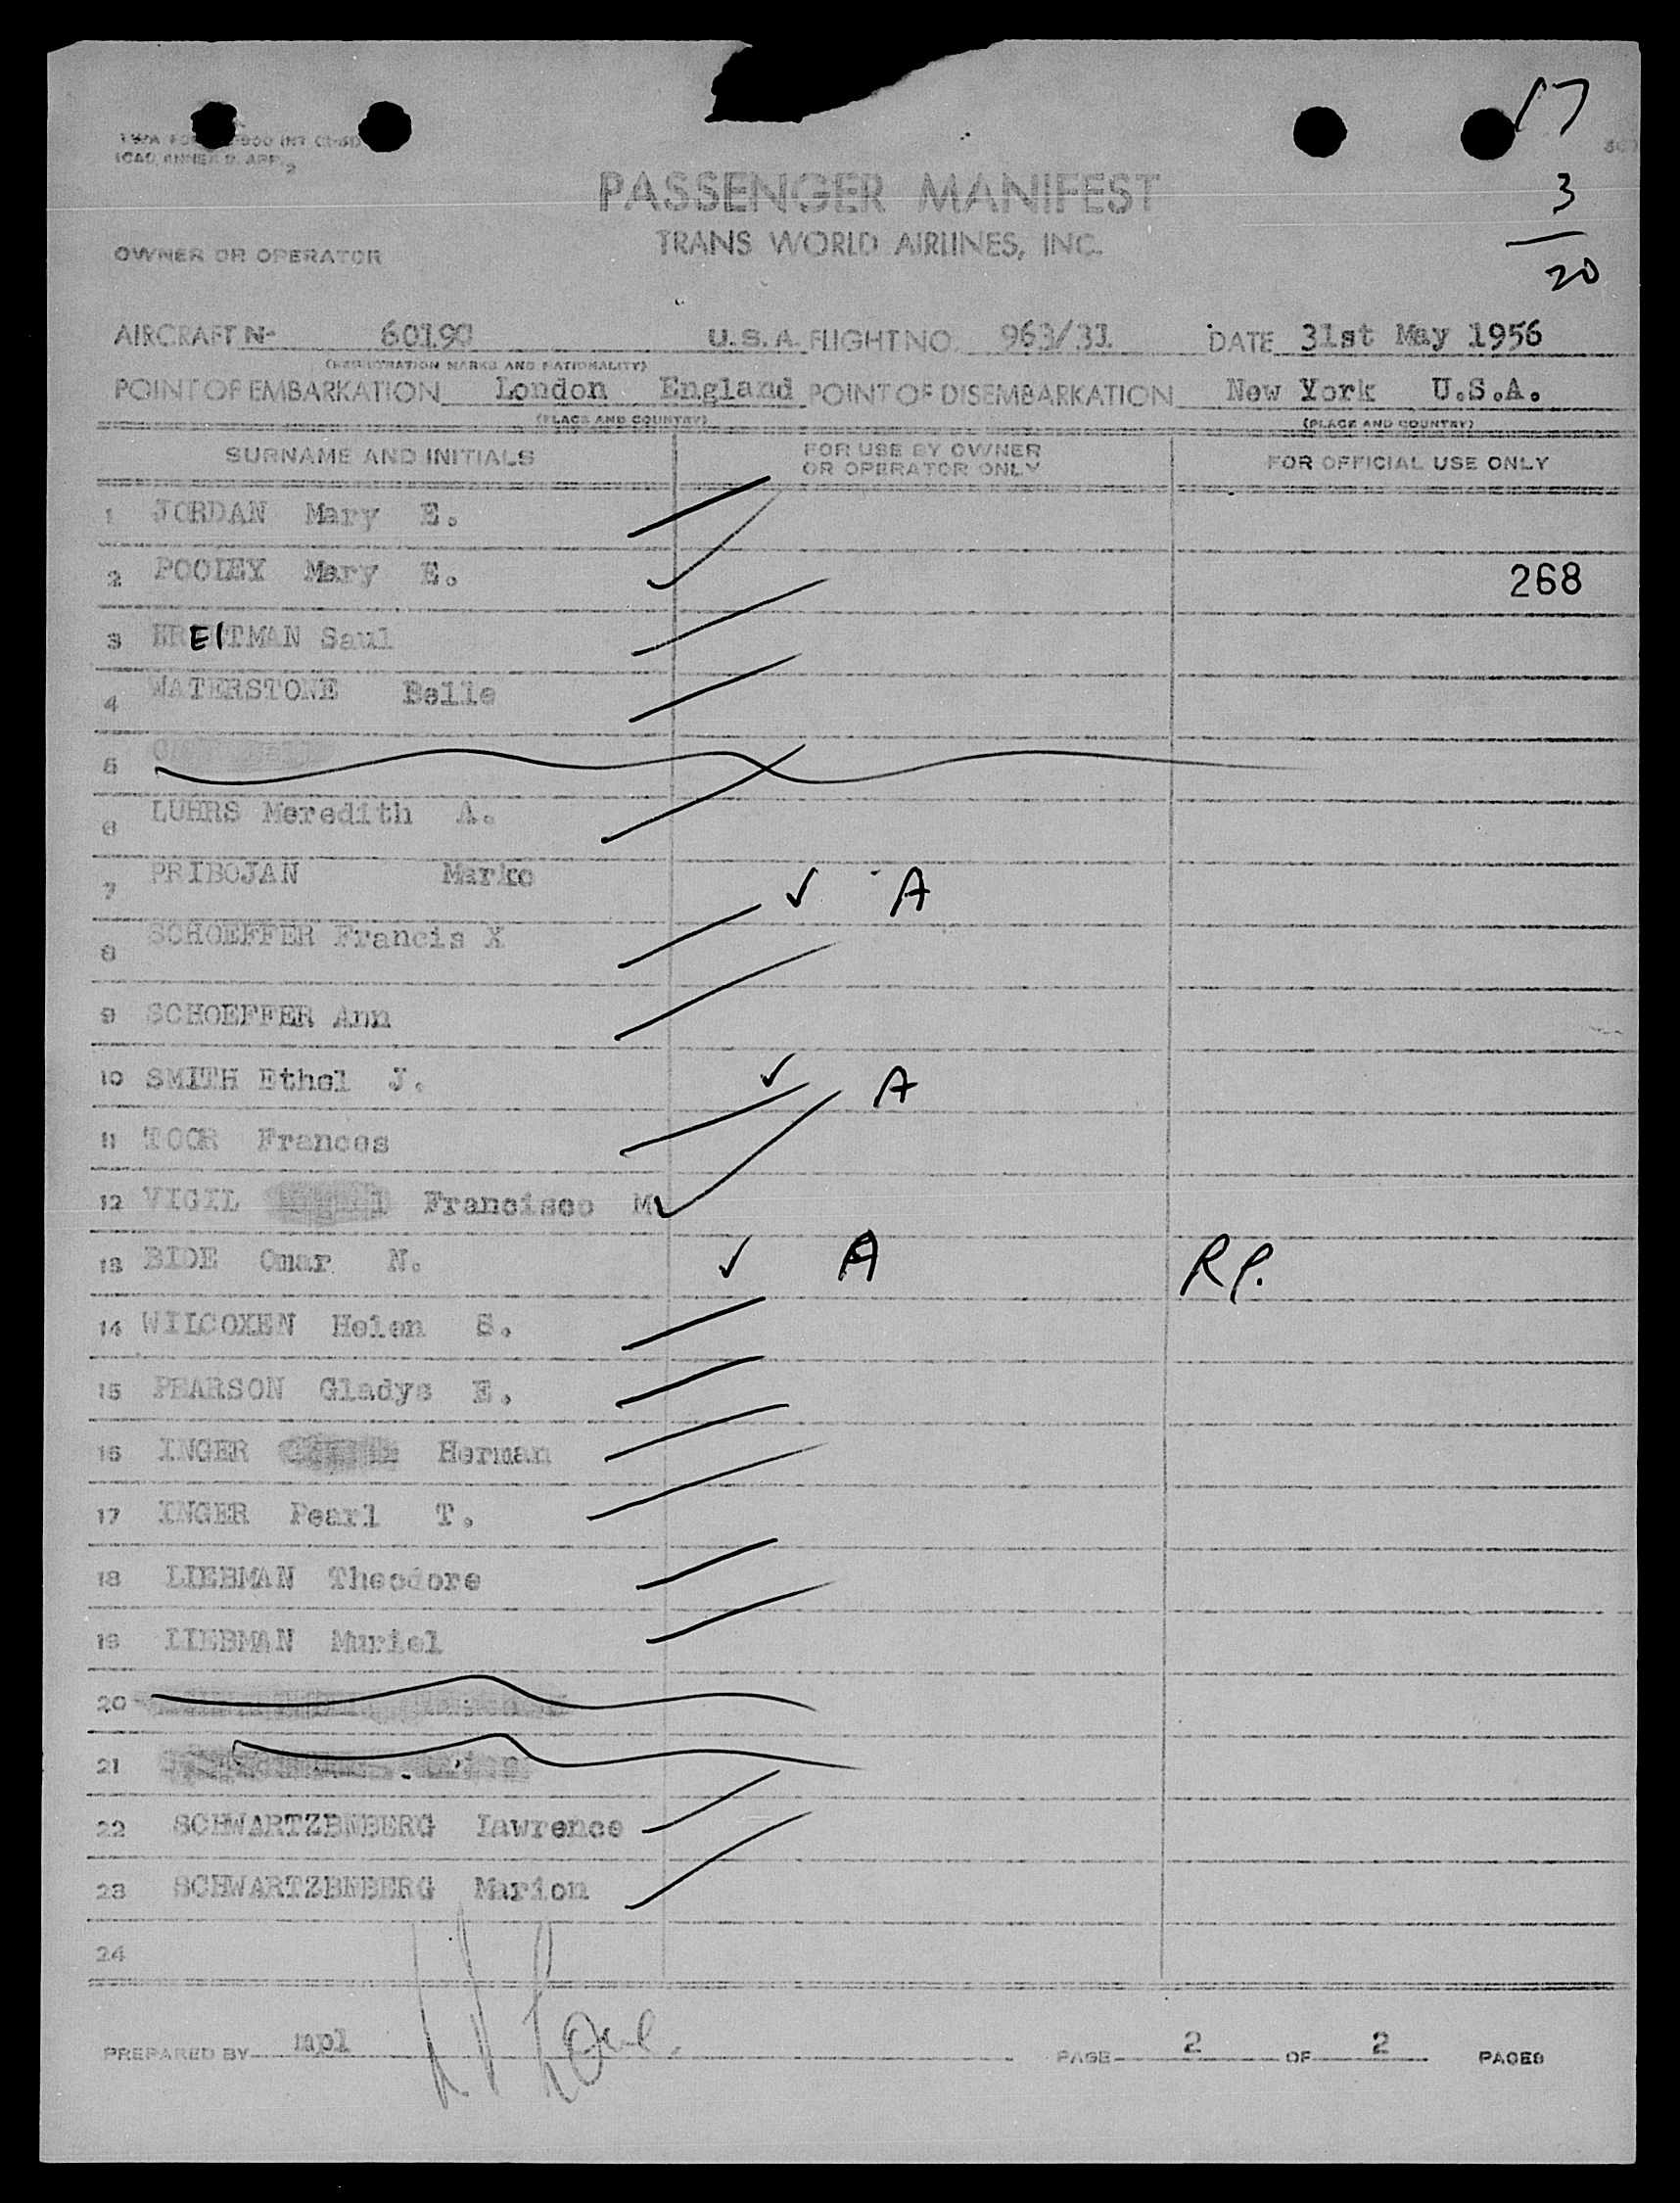 17
TWA FORM
ICAO, ANNEX 9, APP. 2
3
PASSENGER MANIFEST
20
OWNER OR OPERATOR TRANS WORLD AIRLINES, INC.
AIRCRAFT N- 60190 U.S.A. FLIGHT NO. 963/31 DATE 31st May 1956
(REGISTRATION MARKS AND NATIONALITY)
POINT OF EMBARKATION London England POINT OF DISEMBARKATION New York U.S.A.
(PLACE AND COUNTRY) (PLACE AND COUNTRY)
SURNAME AND INITIALS FOR USE BY OWNER OR OPERATOR ONLY FOR OFFICIAL USE ONLY
1 JORDAN Mary E.
2 POOLEY Mary E. 268
3 BREITMAN Saul
4 WATERSTONE Belle
5
6 LUHRS Meredith A.
7 PRIBOJAN Marko ✓ A
8 SCHOEFFER Francis X
9 SCHOEFFER Ann
10 SMITH Ethel J. ✓ A
11 TOOR Frances
12 VIGIL Francisco M
13 BIDE Omar N. ✓ A R P.
14 WILCOXEN Helen S.
15 PEARSON Gladys E.
16 INGER Herman
17 INGER Pearl T.
18 LIEBMAN Theodore
19 LIEBMAN Muriel
20
21
22 SCHWARTZENBERG Lawrence
23 SCHWARTZENBERG Marion
24
PREPARED BY mpl PAGE 2 OF 2 PAGES